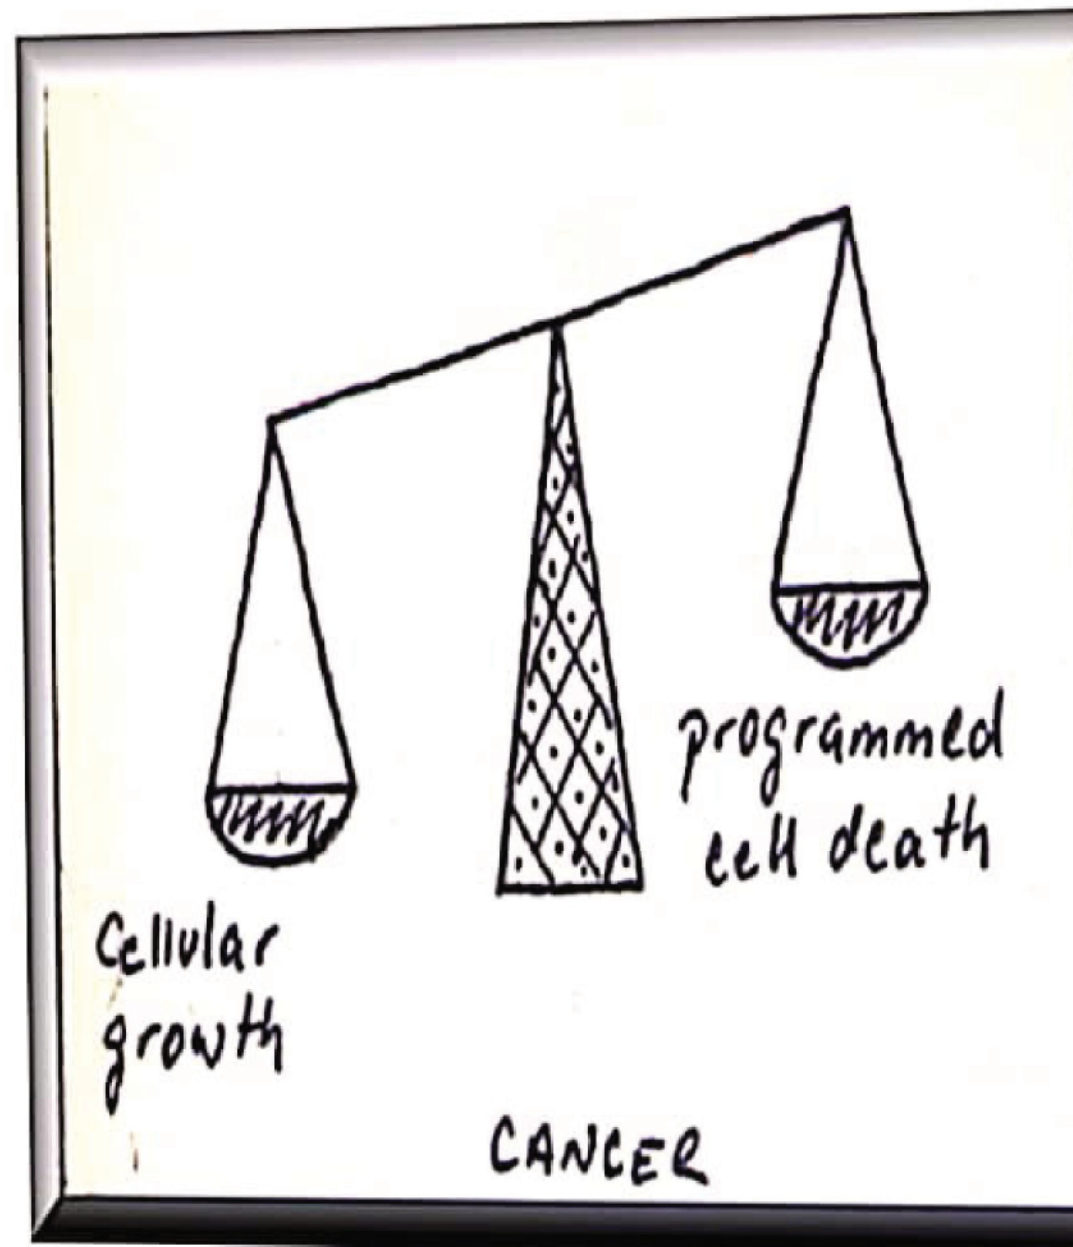 programmed
cell death
Cellular
growth
CANCER